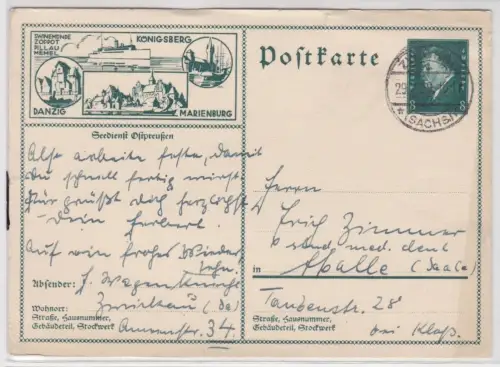 SWINEMÜNDE
ZOPPOT
PILLAU
MEMEL
KÖNIGSBERG
DANZIG
MARIENBURG
Seedienst Ostpreußen
Postkarte
8 8
29
(SACHS)
Also arbeite feste, damit
du schnell fertig wirst.
Für grüßt dich herzlichst
Dein Herbert.
Auf ein frohes Wieder
sehn.
Absender:
Wohnort: Zwickau (Sa)
Straße, Hausnummer,
Gebäudeteil, Stockwerk
34.
Herrn
Erich Zimmer
cand. med. dent
in Halle (Saale)
Taubenstr. 28
Straße, Hausnummer,
Gebäudeteil, Stockwerk
bei Kloß.